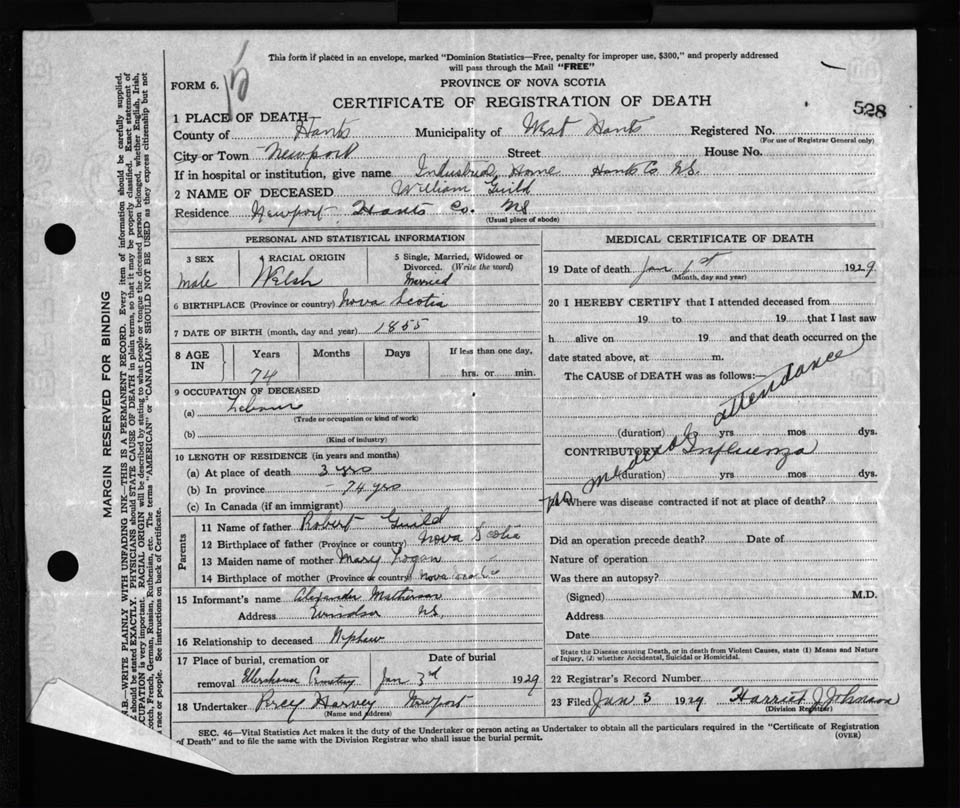 This form if placed in an envelope, marked "Dominion Statistics—Free, penalty for improper use, $300," and properly addressed
will pass through the Mail "FREE"
FORM 6.
PROVINCE OF NOVA SCOTIA
CERTIFICATE OF REGISTRATION OF DEATH
528
1 PLACE OF DEATH
County of Hants Municipality of West Hants Registered No.
(For use of Registrar General only)
City or Town Newport Street House No.
If in hospital or institution, give name Industrial Home Hants Co. N.S.
2 NAME OF DECEASED William Guild
Residence Newport Hants Co. NS
(Usual place of abode)
PERSONAL AND STATISTICAL INFORMATION
3 SEX 4 RACIAL ORIGIN 5 Single, Married, Widowed or
Divorced. (Write the word)
Male Welsh Married
6 BIRTHPLACE (Province or country) Nova Scotia
7 DATE OF BIRTH (month, day and year) 1855
8 AGE IN Years Months Days If less than one day,
74 hrs. or min.
9 OCCUPATION OF DECEASED
(a) Labour
(Trade or occupation or kind of work)
(b)
(Kind of industry)
10 LENGTH OF RESIDENCE (in years and months)
(a) At place of death 3 yrs
(b) In province 74 yrs
(c) In Canada (if an immigrant)
Parents
11 Name of father Robert Guild
12 Birthplace of father (Province or country) Nova Scotia
13 Maiden name of mother Mary Logan
14 Birthplace of mother (Province or country) Nova Scotia
15 Informant's name Alexander Matheson
Address Windsor NS,
16 Relationship to deceased Nephew
17 Place of burial, cremation or Date of burial
removal Cemetery Jan 3rd 1929
18 Undertaker Percy Harvey Newport
(Name and address)
MEDICAL CERTIFICATE OF DEATH
19 Date of death Jan 1st 1929
(Month, day and year)
20 I HEREBY CERTIFY that I attended deceased from
19 to 19 that I last saw
h alive on 19 and that death occurred on the
date stated above, at m.
The CAUSE of DEATH was as follows:—
No medical attendance
(duration) yrs mos dys.
CONTRIBUTORY Influenza
(duration) yrs mos dys.
21 Where was disease contracted if not at place of death?
Did an operation precede death? Date of
Nature of operation
Was there an autopsy?
(Signed) M.D.
Address
Date
State the Disease causing Death, or in death from Violent Causes, state (1) Means and Nature
of Injury, (2) whether Accidental, Suicidal or Homicidal.
22 Registrar's Record Number
23 Filed Jan 3 1929 Harriet J Johnson
(Division Registrar)
SEC. 46—Vital Statistics Act makes it the duty of the Undertaker or person acting as Undertaker to obtain all the particulars required in the "Certificate of Registration
of Death" and to file the same with the Division Registrar who shall issue the burial permit.
(OVER)
MARGIN RESERVED FOR BINDING
N.B.—WRITE PLAINLY WITH UNFADING INK—THIS IS A PERMANENT RECORD. Every item of information should be carefully supplied.
should be stated EXACTLY. PHYSICIANS should STATE CAUSE OF DEATH in plain terms, so that it may be properly classified. Exact statement of
OCCUPATION is very important. RACIAL ORIGIN will be described by stating to what people or tongue the deceased person belonged, whether English, Irish,
Scotch, French, German, Russian, Ruthenian, etc. The terms "AMERICAN" or "CANADIAN" SHOULD NOT BE USED as they express citizenship but not
a race or people. See instructions on back of Certificate.